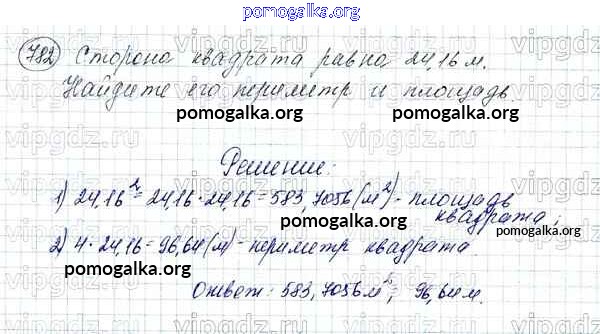 pomogalka.org
782 Сторона квадрата равна 24,16 м.
Найдите его периметр и площадь.
pomogalka.org pomogalka.org
Решение:
1) 24,16² = 24,16 · 24,16 = 583,7056 (м²) - площадь
квадрата;
pomogalka.org pomogalka.org
2) 4 · 24,16 = 96,64 (м) - периметр квадрата
Ответ: 583,7056 м²; 96,64 м.
pomogalka.org